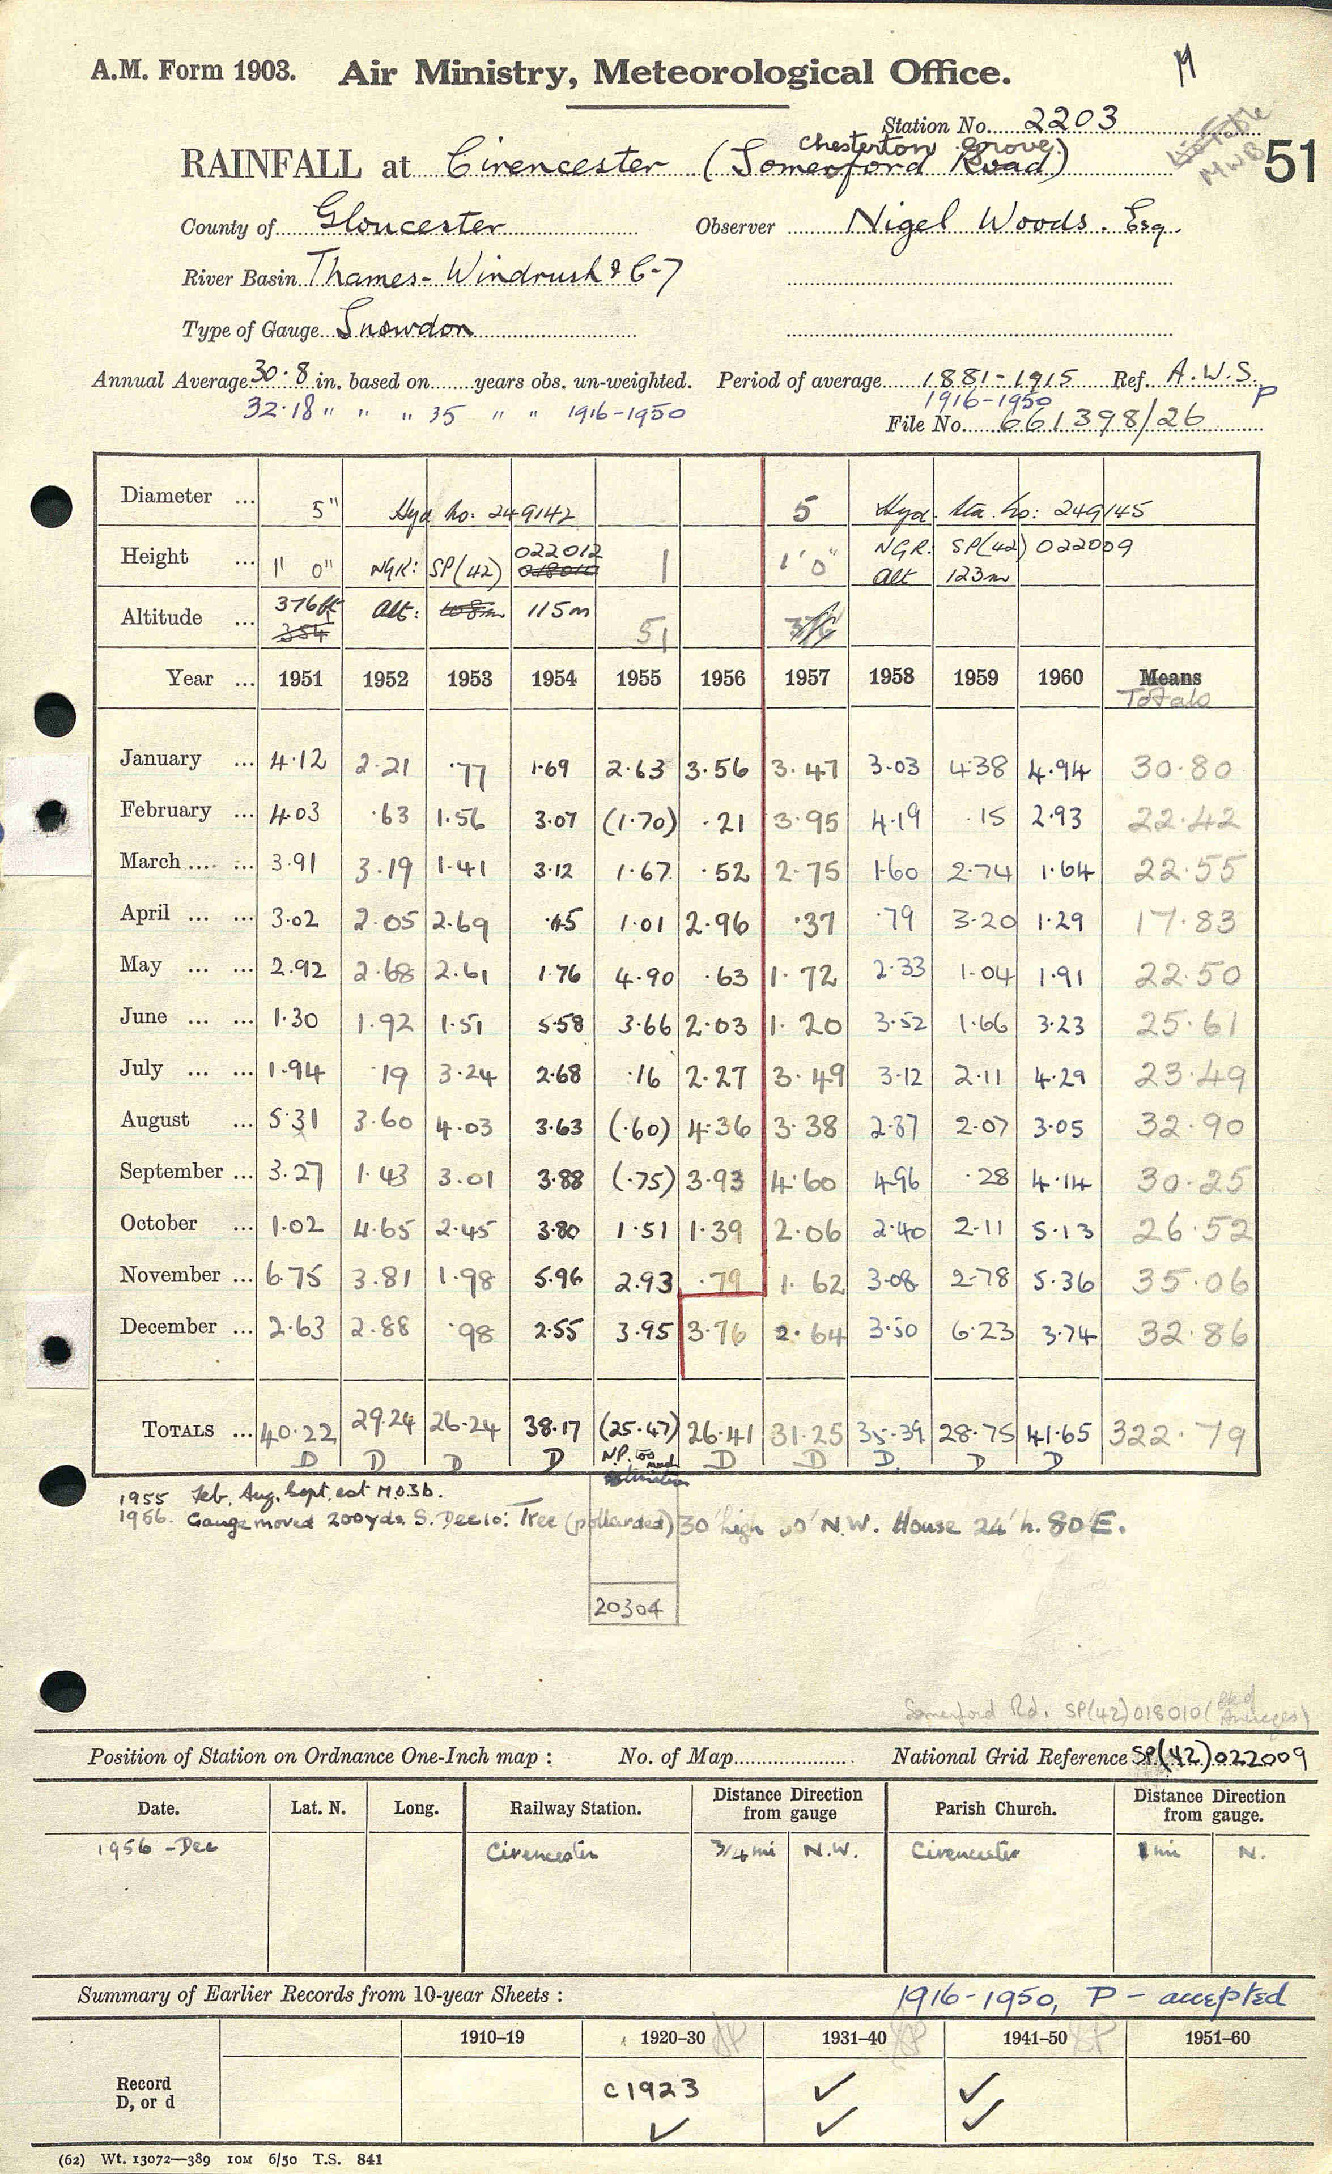 A.M. Form 1903. Air Ministry, Meteorological Office. M
Station No. 2203
Chesterton Grove.
RAINFALL at Cirencester (Somerford Road) 51
MWB
County of Gloucester Observer Nigel Woods. Esq.
River Basin Thames - Windrush & C-7
Type of Gauge Snowdon
Annual Average 30.8 in. based on years obs. un-weighted. Period of average 1881-1915 Ref. A.W.S.
32.18 " " " 35 " " 1916-1950 1916-1950 P
File No. 661398/26
Diameter ... 5" Hyd. No: 249142 5 Hyd. Sta. No: 249145
Height ... 1' 0" NGR: SP(42) 022012 018010 1 1' 0" NGR: SP(42) 022009
Alt 123m
Altitude ... 376ft 354 Alt: 108m 115m 51 376
Year ... 1951 1952 1953 1954 1955 1956 1957 1958 1959 1960 Means
Totals
January ... 4.12 2.21 .77 1.69 2.63 3.56 3.47 3.03 4.38 4.94 30.80
February ... 4.03 .63 1.56 3.07 (1.70) .21 3.95 4.19 .15 2.93 22.42
March .... ... 3.91 3.19 1.41 3.12 1.67 .52 2.75 1.60 2.74 1.64 22.55
April ... ... 3.02 2.05 2.69 .45 1.01 2.96 .37 .79 3.20 1.29 17.83
May ... ... 2.92 2.68 2.61 1.76 4.90 .63 1.72 2.33 1.04 1.91 22.50
June ... ... 1.30 1.92 1.51 5.58 3.66 2.03 1.20 3.52 1.66 3.23 25.61
July ... ... 1.94 .19 3.24 2.68 .16 2.27 3.49 3.12 2.11 4.29 23.49
August ... 5.31 3.60 4.03 3.63 (.60) 4.36 3.38 2.87 2.07 3.05 32.90
September ... 3.27 1.43 3.01 3.88 (.75) 3.93 4.60 4.96 .28 4.14 30.25
October ... 1.02 4.65 2.45 3.80 1.51 1.39 2.06 2.40 2.11 5.13 26.52
November ... 6.75 3.81 1.98 5.96 2.93 .79 1.62 3.08 2.78 5.36 35.06
December ... 2.63 2.88 .98 2.55 3.95 3.76 2.64 3.50 6.23 3.74 32.86
TOTALS ... 40.22 29.24 26.24 38.17 (25.47) 26.41 31.25 35.39 28.75 41.65 322.79
D D D D N.P. too much estimation D D D. D D
1955 Feb, Aug, Sept, est M.O.3b.
1956. Gauge moved 200yds S. Dec 10: Tree (pollarded) 30' high N.W. House 24' h. 80'E.
20304
Somerford Rd. SP(42)018010 (
Position of Station on Ordnance One-Inch map : No. of Map National Grid Reference SP(42)022009
Date. Lat. N. Long. Railway Station. Distance Direction from gauge Parish Church. Distance Direction from gauge.
1956 - Dec Cirencester 3/4 mi N.W. Cirencester 1 mi N.
Summary of Earlier Records from 10-year Sheets : 1916-1950, P - accepted
1910–19 1920–30 1931–40 1941–50 1951–60
Record D, or d c1923 ✓ ✓
✓ ✓ ✓
(62) Wt. 13072—389 10M 6/50 T.S. 841